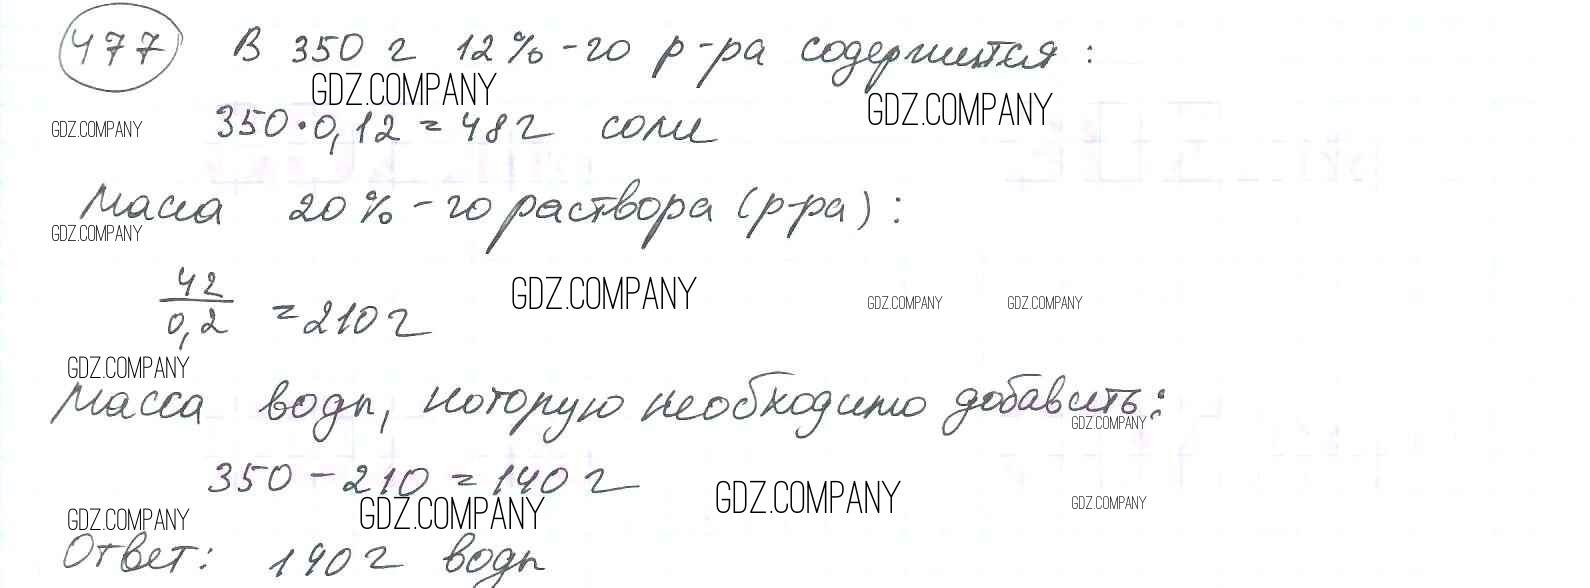 477 В 350 г 12%-го р-ра содержится:
GDZ.COMPANY
GDZ.COMPANY
GDZ.COMPANY
350·0,12=48г соли
Масса 20%-го раствора (р-ра):
GDZ.COMPANY
42
0,2
=210г
GDZ.COMPANY
GDZ.COMPANY
GDZ.COMPANY
GDZ.COMPANY
Масса воды, которую необходимо добавить:
GDZ.COMPANY
350-210=140г
GDZ.COMPANY
GDZ.COMPANY
GDZ.COMPANY
GDZ.COMPANY
Ответ: 140г воды